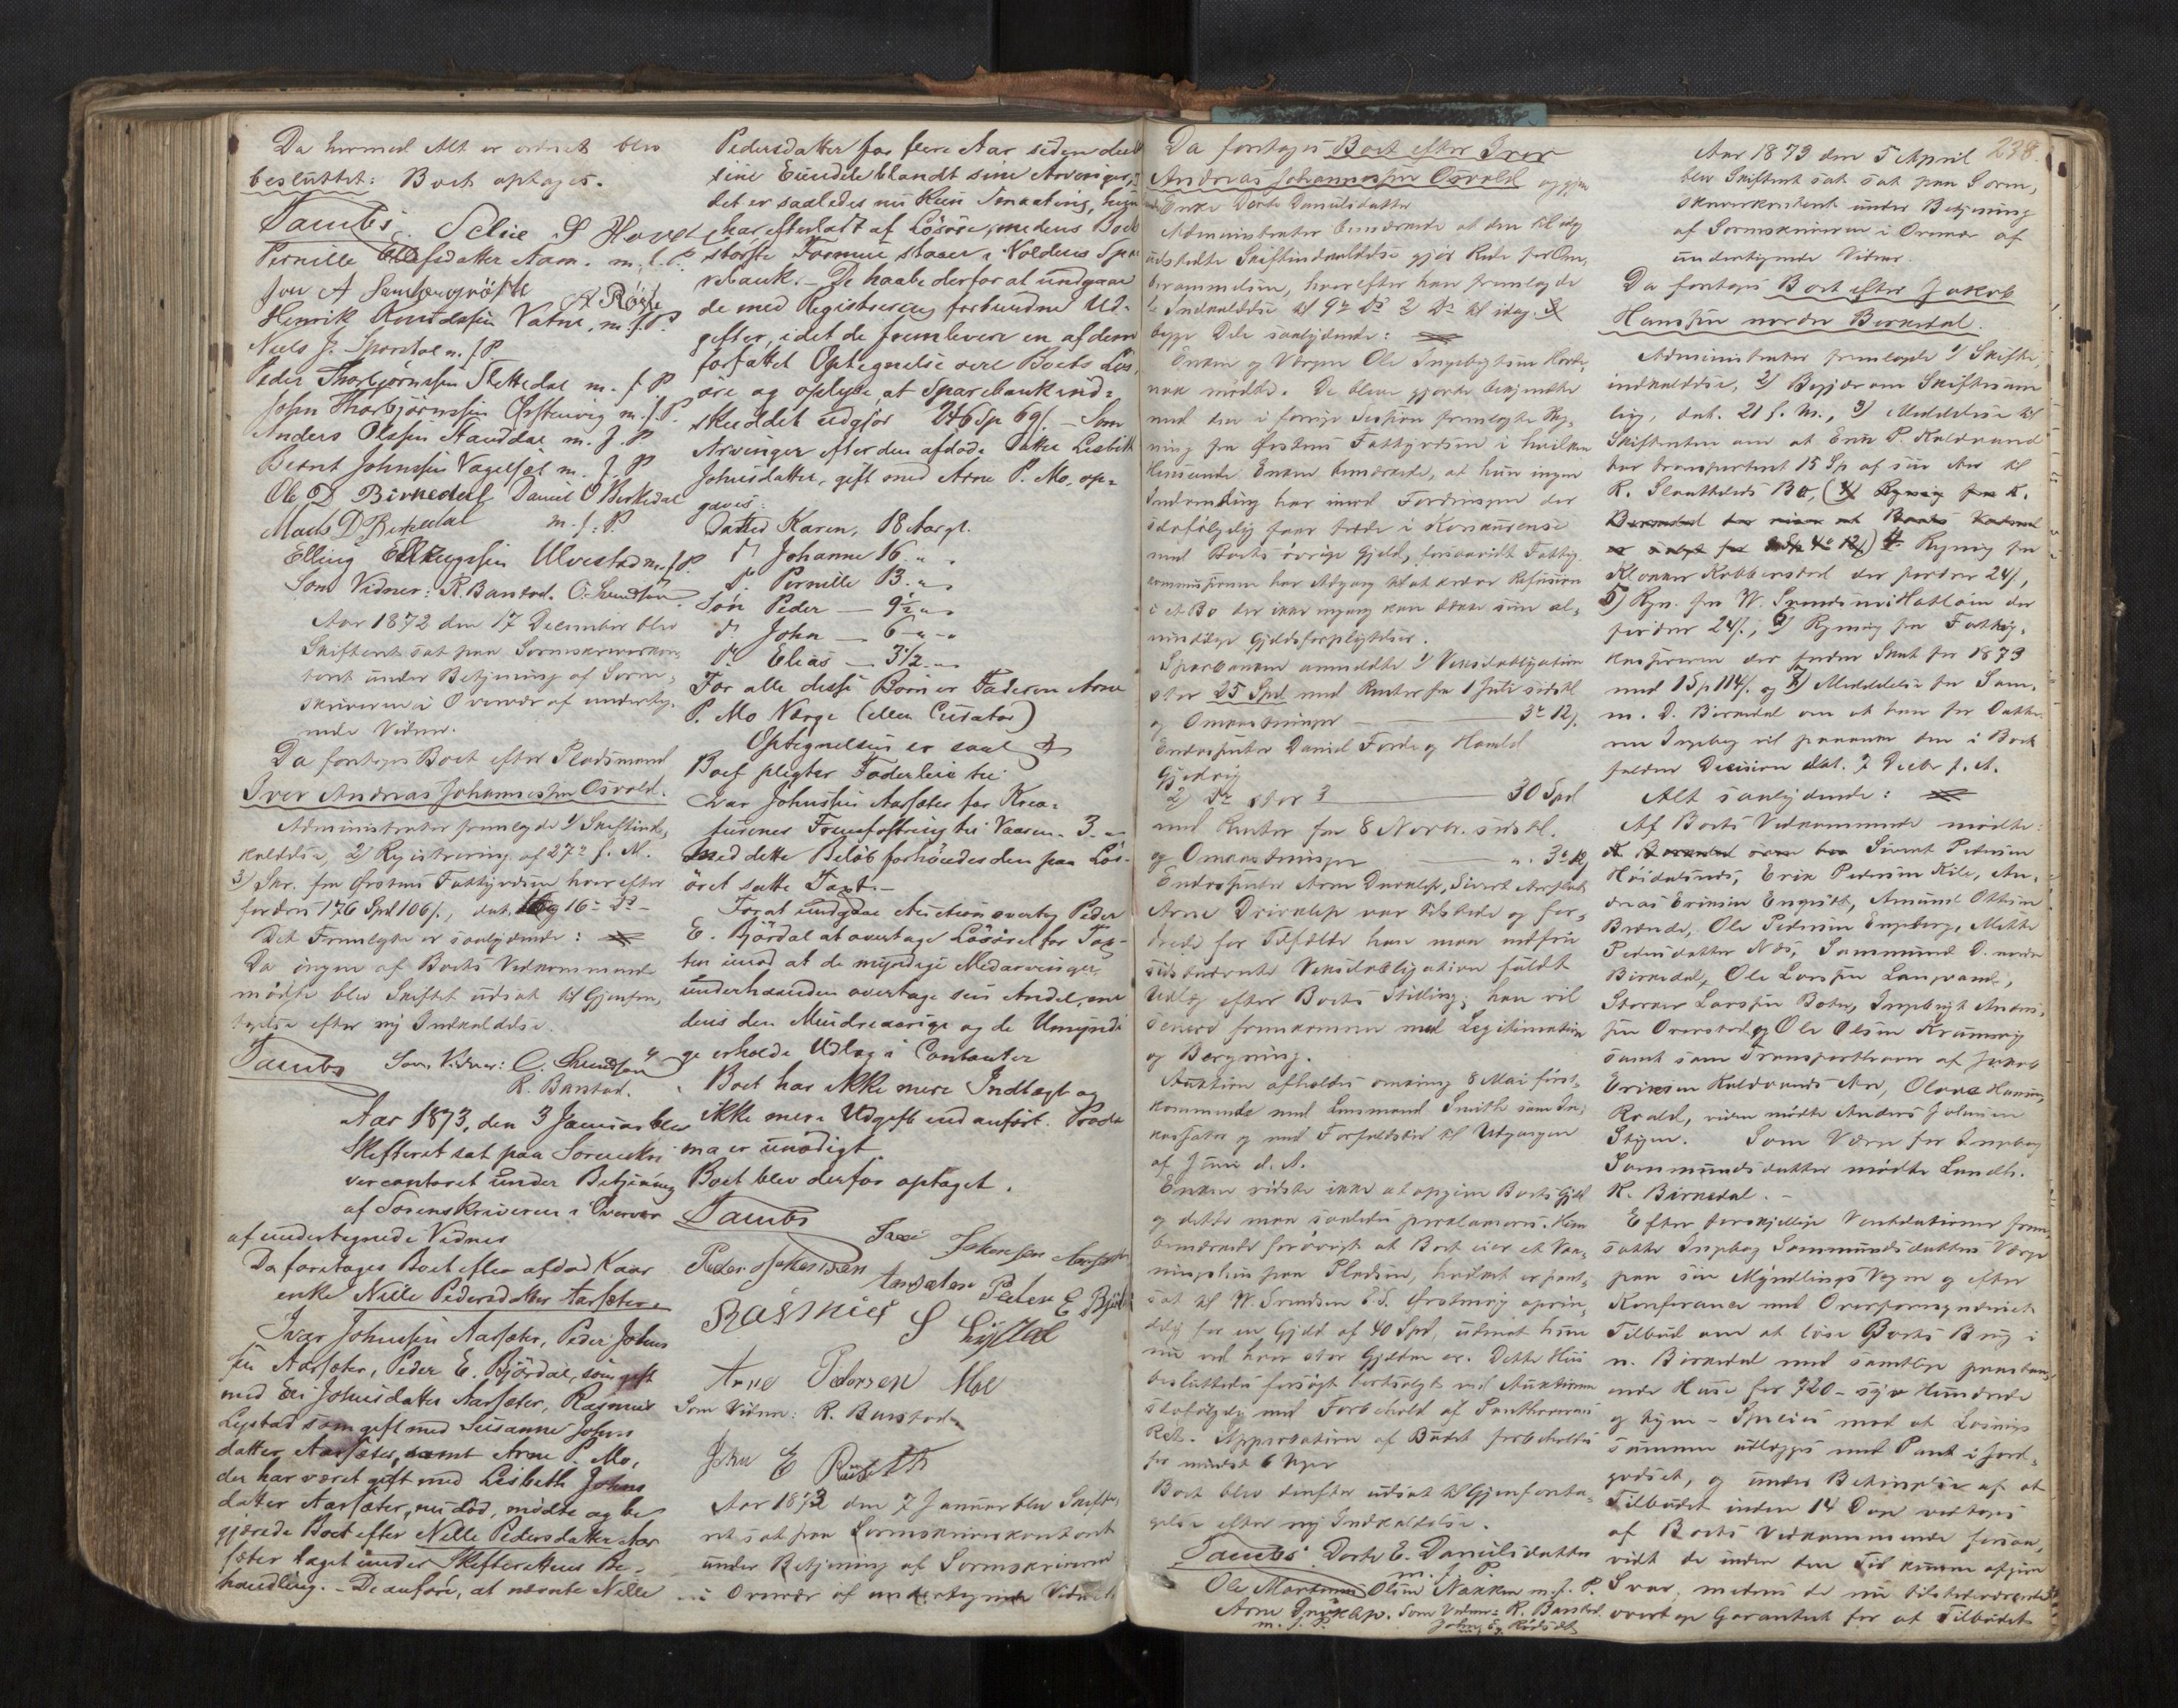 Da hermed Alt er ordnet blev
besluttet: Boet optages.
Tambs. P Hovd
Pernille Ellefsdatter Aam. m. f. P.
Jon A
A Röste
Henrik Knudssen Vatne, m. f. P.
Niels J. m. f. P.
Peder Thorbjørnssen Slettedal m. f. P.
John Thorbjørnssen Ørstenvig m. f. P.
Anders Olssen Standal m. f. P.
Bernt Johnssen m. f. P
Ole D Birkedal Daniel O Birkedal
Mads D Birkedal m. f. P.
Elling Ellingssen Ulvestad m. f. P.
Som Vidner: R. Banstad. O. Svendsen
Aar 1872 den 17 December blev
Skifteret sat paa Sorenskriverkon,
toret under Betjening af Soren,
skriveren i Overvær af underteg,
nede Vidner.
Da foretoges Boet efter Pladsmand
Iver Andreas Johannessen Osvold.
Administrator fremlagde 1/ Skifteind,
kaldelse, 2) Registrering af 27de f. M.
3) Skr. fra Ørstens Fattigvæsen hvorefter
fordres 176 Spd 106/., dat. 16de ds.
Det Fremlagte er saalydende:
Da ingen af Boets Vedkommende
mødte blev Skiftet udsat til Gjenfore,
tagelse efter ny Indkaldelse.
Tambs Som Vidner: O. Svendsen
R. Banstad.
Aar 1873, den 3 Januar blev
Skifteret sat paa Sorenskri
vercontoret under Betjening
af Sorenskriveren i Overvær
af undertegnede Vidner
Da foretages Boet efter afdød Kaar
enke Nille Pedersdatter Aarsæter
Ivar Johnssen Aarsæter, Peder Johns
sen Aarsæter, Peder E. Bjørdal, som gift
med Eli Johnsdatter Aarsæter, Rasmus
Lystad som gift med Susanne Johns
datter Aarsæter, samt Arne P. Mo,
der har været gift med Lisbeth Johns
datter Aarsæter, nu død, mødte og be
gjærede Boet efter Nille Pedersdatter Aar
sæter taget under Skifterettens Be-
handling. - De anføre, at nævnte Nille
Pedersdatter for flere Aar siden deelt
sine Eiendele blandt sine Arvinger,
det er saaledes nu kun Ubetydelig, hun
har efterladt af Løsøre, medens Boets
største Formue staaer i Voldens Spa
rebank. - De haabe derfor at undgaae
de med Registrering forbundne Ud-
gifter, idet de fremlevere en af dem
forfattet Optegnelse over Boets Løs,
øre og oplyse, at Sparebankind-
skuddet udgjør 246 Sp 69/. - Som
Arvinger efter den afdøde Datter Lisbeth
Johnsdatter, gift med Arne P. Mo, op-
gaves:
Datter Karen, 18 Aar gl.
do Johanne 16 " "
do Pernille 13 " "
Søn Peder - 9½ " "
do John - 6 " "
do Elias - 3½ " "
For alle disse Børn er Faderen Arne
P. Mo Værge (ellers Curator)
Optegnelsen er saal
Boet pligter Foderleie til
Ivar Johnssen Aarsæter for Krea-
turenes Fremfostring til Vaaren 3. "
Med dette Beløb forhøiedes den paa Løs-
øret satte Taxt. -
For at undgaae Auction overtog Peder
E. Bjørdal at overtage Løsøret for Tax-
ten imod at de myndige Medarvinger
underhaanden overtage sin Andel, me
dens den Mindreaarige og de Umyndi
ge erholde Udlæg i Contanter
Boet har ikke mere Indtægt og
ikke mere Udgift end anført. Procla
ma er unødigt.
Boet blev derfor optaget.
Tambs
Iver Johnssen Aarsæter
Peder Johnssen Aarsæter Peder E Bjørdal
Rasmus S Lystad
Arne Pedersen Moe
Som Vidner: R. Banstad
John E Rødsæth
Aar 1873 den 7 Januar blev Skifte,
ret sat paa Sorenskriverkontoret
under Betjening af Sorenskriveren
i Overvær af undertegnede Vidner
Da foretoges Boet efter Iver
Andreas Johannessen Osvold og gjen
Enke Dorte Danielsdatter
Administrator bemærkede at den til idag
udstedte Skifteindkaldelse gjør Rede for Om,
brammelsen, hvorefter han fremlagde
1. Indkaldelse til 9de ds 2) do til idag.
begge Dele saalydende:
Enken og Værgen Ole Ingebrigtsen
nak mødte. De bleve gjorte bekjendte
med den i forrige Session fremlagte Reg,
ning fra Ørstens Fattigvæsen i hvilken
Henseende Enken bemærkede, at hun ingen
Indvending har imod Fordringen der
selvfølgelig faar træde i Konkurence
med Boets øvrige Gjeld, forsaavidt Fattig
kommissionen har Adgang til at kræve Refusion
i et Bo der ikke engang kan dække sine al,
mindelige Gjeldsforpligtelser.
Sparebanken anmeldte 1/ Vexelobligation
stor 25 Spd med Renter fra 1 Juli sidstl.
og Omkostninger - 3 " 12/.
Endossenter Daniel Ford og
2) do stor 3 - 30 Spd
med Renter fra 8 Novbr. sidstl.
og Omkostninger - ". 3 " 12
Endossenter Arne Sivert
Arne var tilstede og for,
drede for Tilfælde han maa indfri
sidstnævnte Vexelobligation fuldt
Udlæg efter Boets Stilling; han vil
senere fremkomme med Legitimation
og Beregning.
Auktion afholdes omkring 8 Mai først,
kommende med Lensmand Smith som In,
kassator og med Forfaldstid til Udgangen
af Juni d. A.
Enken vidste ikke at opgive Boets Gjeld
og dette maa saaledes proklameres. Hun
bemærkede forøvrigt at Boet eier et Vaa,
ningshus paa Pladsen, hvilket er pant,
sat til W. Svendsen Ørstenvig oprin,
delig for en Gjeld af 40 Spd, uden at hun
nu ved hvor stor Gjelden er. Dette Hus
besluttedes forsøgt bortsolgt ved Auktionen
selvfølgelig med Forbehold af Panthaverens
Ret. Approbation af Budet forbeholdes
for mindst 6 Uger
Boet blev derefter udsat til Gjenforeta,
gelse efter ny Indkaldelse.
Tambs Dorte E. Danielsdatter
m. f. P.
Ole Olsen Nakken m. f. P.
Arne Som Vidner: R. Banstad
m. f. P. John E. Rødsæth
238.
Aar 1873 den 5 April
blev Skifteret sat paa Soren,
skriverkontoret under Betjening
af Sorenskriveren i Overvær af
undertegnede Vidner.
Da foretoges Boet efter Jakob
Hanssen nordre Birkedal.
Administrator fremlagde 1/ Skifte,
indkaldelse, 2) Begjæring om Skiftesam
ling, dat. 21 f. M., 3) Meddelelse til
Skifteretten om at Erik P. Kaldvand
har transporteret 15 Sp af sin Arv til
R. Bo, (4) Regning fra K.
Birkedal der viser at Boets
er solgt for 12/) 4. Regning fra
Klokker Kobberstad der fordrer 24/,
5) Regn. fra W. Svendsen der
fordrer 24/.; 6) Regning fra Fattig,
kassereren der fordrer Skat for 1873
med 1 Sp 114/. og 7) Meddelelse fra Sam,
m. D. Birkedal om at han for Datte
ren Ingeborg vil paaanke den i Boet
faldne Decision dat. 7 Decbr f. A.
Alt saalydende:
Af Boets Vedkommende mødte:
Sivert Pedersen
Erik Pedersen Kile, An,
dreas Eriksen Engeset, Amund Ottesen
Brænde, Ole Pedersen Engeberg, Mette
Pedersdatter Næs, Sammund D. nordre
Birkedal, Ole Larssen Langvand,
Larssen Botn, Ingebrigt Andreas,
sen Overstad, og Ole Olsen
samt som Transporthaver af Jakob
Eriksen Kaldvands Arv, Olaves Hansen
Roald, viden mødte Anders Johnsen
Stigen. Som Værge for Ingeborg
Sammundsdatter mødte Landh.
K. Birkedal. -
Efter forskjellige Ventilationer frem,
satte Ingeborg Sammundsdatters Værge
paa sin Myndlings Vegne og efter
Konferance med Overformynderiet
Tilbud om at løse Boets Brug i
n. Birkedal med samtlige paastaa,
ende Huse for 720 - syv Hundrede
og tyve - Species mod at Løsnings
summen udlægges med Pant i Jord,
godset, og under Betingelse af at
Tilbudet inden 14 Dage vedtages
af Boets Vedkommende forsaa,
vidt de inden den Tid kunne afgive
Svar, medens de nu tilstedeværende
overtage Garantiet for at Tilbudet